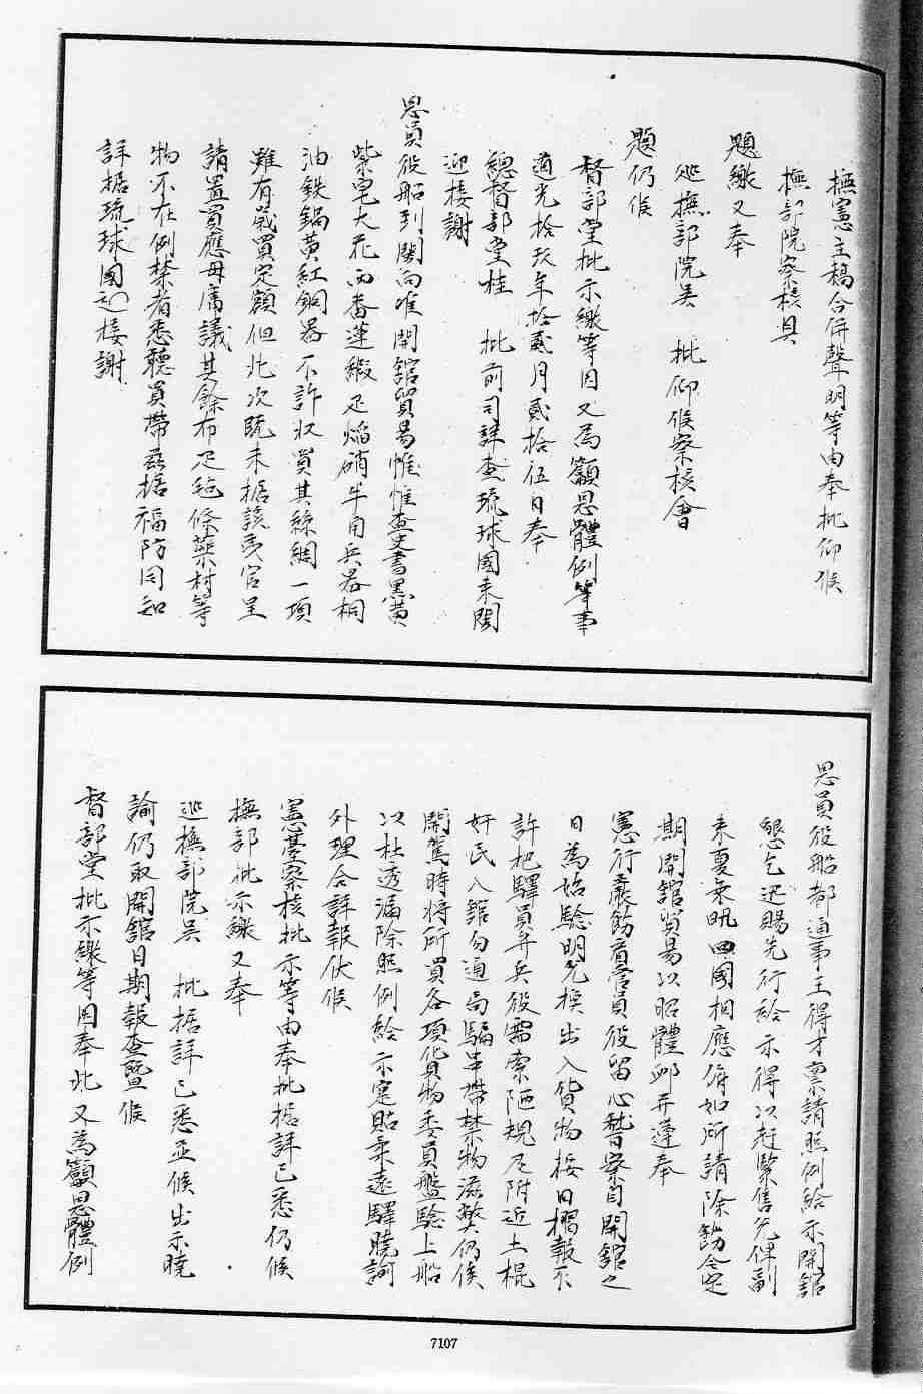 撫憲主稿合併聲明等由奉批仰候
撫部院察核具
題繳又奉
巡撫部院吳　批仰候察核會
題仍候
督部堂批示繳等因又為籲恩體例等事
道光拾玖年拾貳月貳拾伍日奉
總督部堂桂　批前司詳查琉球國來閩
迎接謝
恩員役船到閩向准開館貿易惟查史書黑黃
紫皂大花西番蓮緞疋焰硝牛角兵器桐
油鉄鍋黃紅銅器不許収買其絲綢一項
雖有歲買定額但此次既未據該夷官呈
請置買應毋庸議其餘布疋毡條藥材等
物不在例禁者悉聽買帶茲據福防同知
詳据琉球國迎接謝
恩員役船都通事王得才稟請照例給示開舘
懇乞迅賜先行給示得以赶緊售兌俾副
來夏乘汛回國相應俯如所請除飭令定
期開舘貿易以昭體卹并遵奉
憲行嚴飭看管員役留心稽察自開舘之
日為始驗明兌換出入貨物按日摺報不
許把驛員弁兵役需索陋規及附近土棍
奸民入舘勾通局騙串帶禁物滋弊仍俟
開駕時將所買各項貨物委員盤驗上船
以杜透漏除照例給示寔貼柔遠驛曉諭
外理合詳報伏候
憲臺察核批示等由奉批据詳已悉仍候
撫部批示繳又奉
巡撫部院吳　批据詳已悉並候出示曉
諭仍取開舘日期報查暨候
督部堂批示繳等因奉此又為籲恩體例
7107